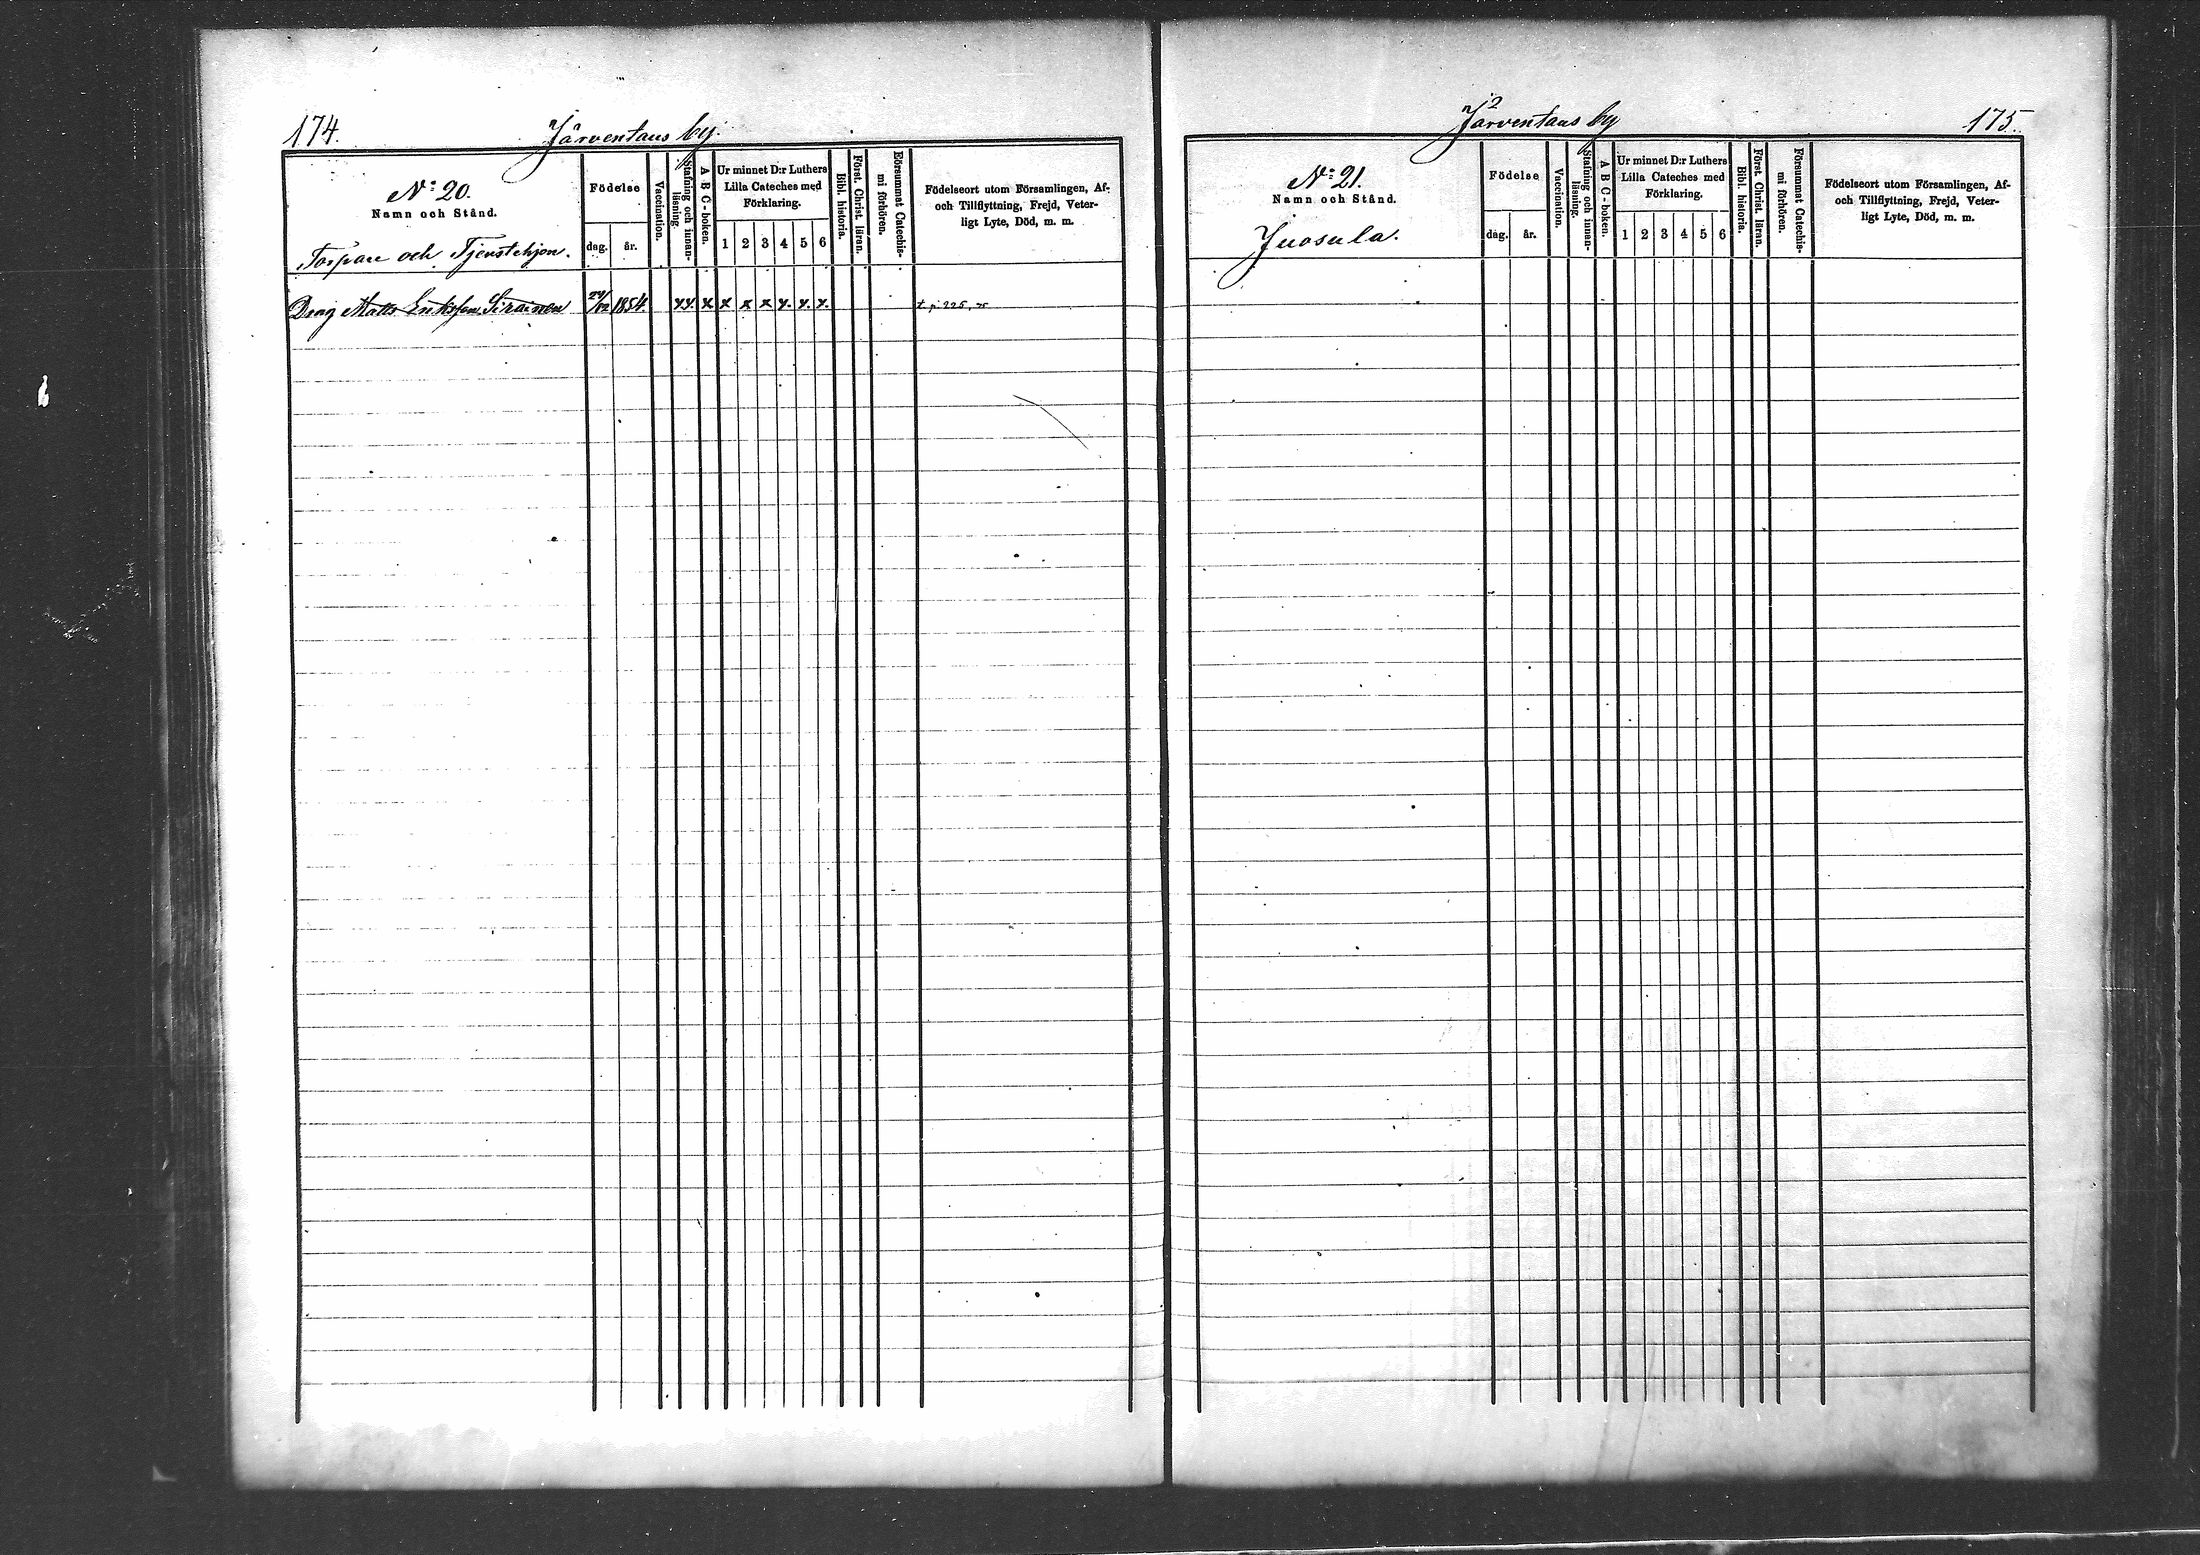 174.
Järventaus by.
N:o 20.
Namn och Stånd.
Torpare och Tjenstehjon.
Födelse
dag.
år.
Vaccination.
Stafning och innan-
läsning.
A B C - boken.
Ur minnet D:r Luthers
Lilla Cateches med
Förklaring.
1 2 3 4 5 6
Bibl. historia.
Först. Christ. läran.
Försummat Catechis-
mi förhören.
Födelseort utom Församlingen, Af-
och Tillflyttning, Frejd, Veter-
ligt Lyte, Död, m. m.
Dräng Matts Eriksson Siirainen 29/12 1854 x x x x x x x x x t. p. 225,
2
Järventaus by
175.
N:o 21.
Namn och Stånd.
Juosula.
Födelse
dag.
år.
Vaccination.
Stafning och innan-
läsning.
A B C - boken.
Ur minnet D:r Luthers
Lilla Cateches med
Förklaring.
1 2 3 4 5 6
Bibl. historia.
Först. Christ. läran.
Försummat Catechis-
mi förhören.
Födelseort utom Församlingen, Af-
och Tillflyttning, Frejd, Veter-
ligt Lyte, Död, m. m.